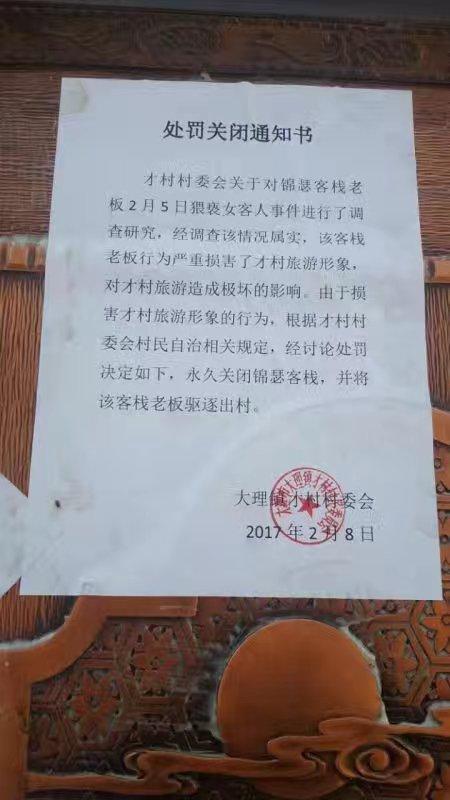 处罚关闭通知书
才村村委会关于对锦瑟客栈老
板2月5日猥亵女客人事件进行了调
查研究，经调查该情况属实，该客栈
老板行为严重损害了才村旅游形象，
对才村旅游造成极坏的影响。由于损
害才村旅游形象的行为，根据才村村
委会村民自治相关规定，经讨论处罚
决定如下，永久关闭锦瑟客栈，并将
该客栈老板驱逐出村。
大理镇才村村委会
2017年2月8日